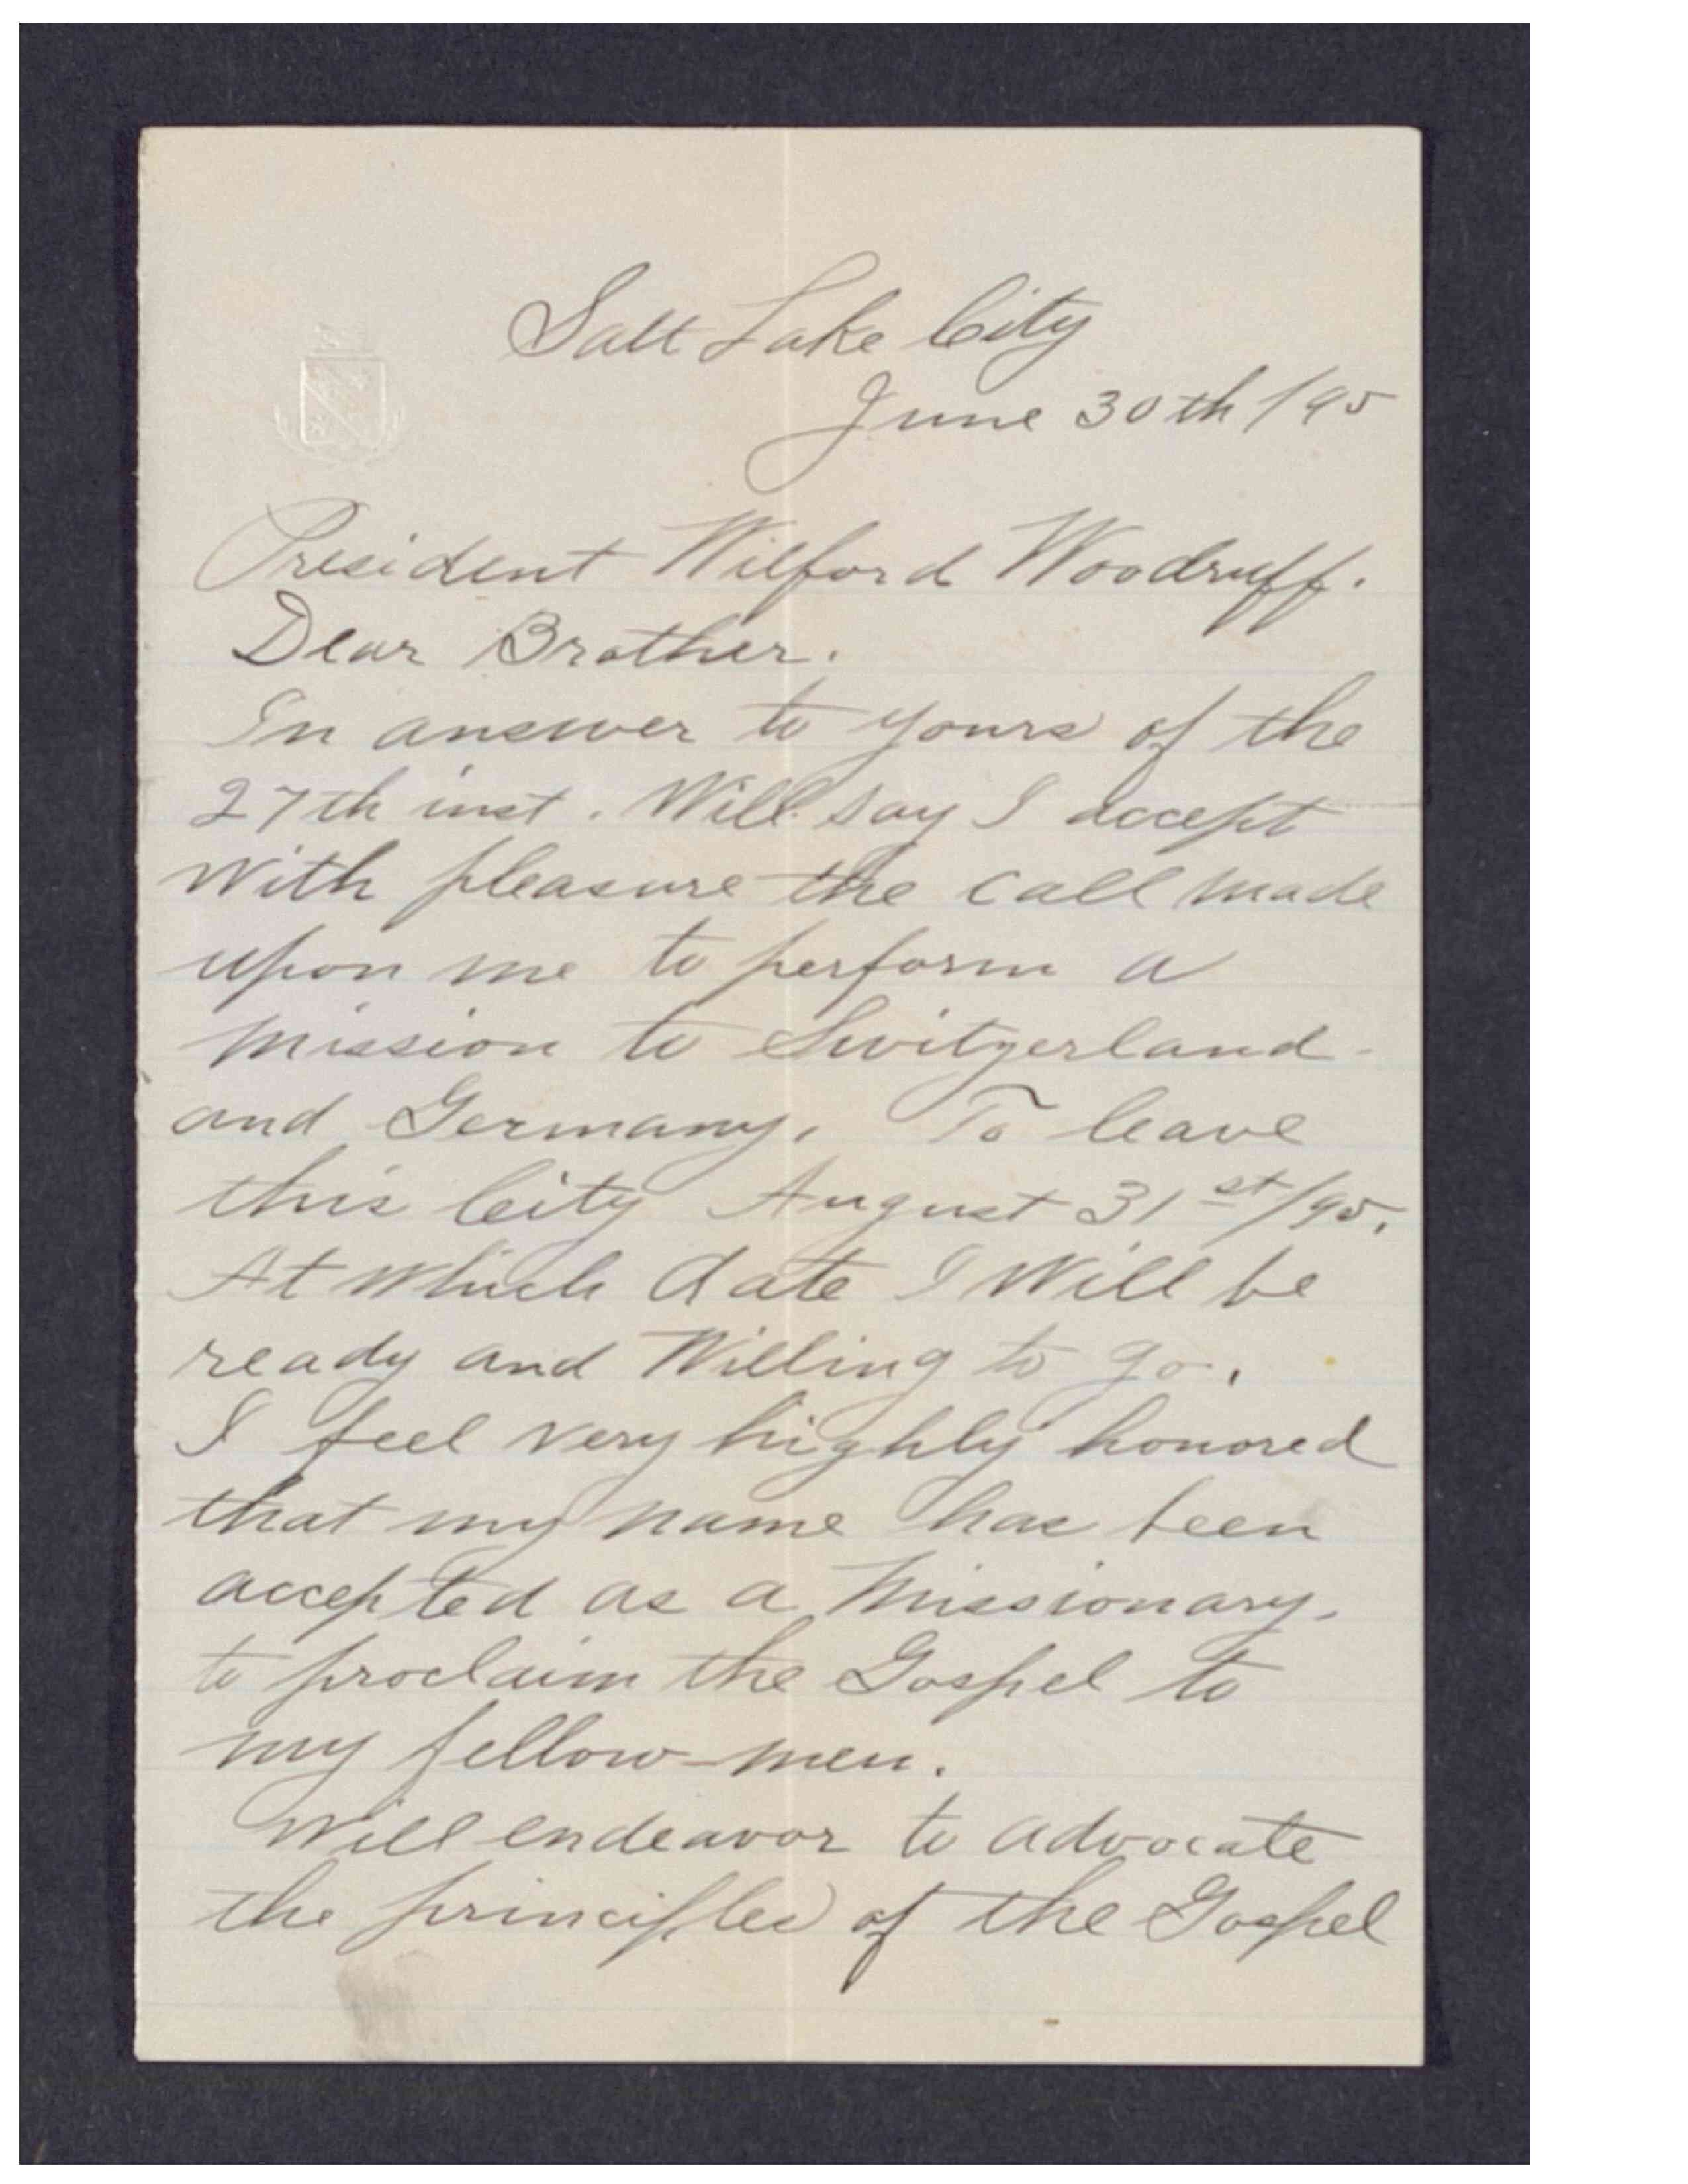 Salt Lake City
June 30th /95
President Wilford Woodruff.
Dear Brother.
In answer to yours of the
27th inst. Will say I accept
With pleasure the call made
upon me to perform a
mission to Switzerland
and Germany. To leave
this City August 31st/95.
At which date I Will be
ready and Willing to go.
I feel very highly honored
that my name has been
accepted as a Missionary.
to proclaim the Gospel to
my fellow-men.
Will endeavor to advocate
the principles of the Gospel